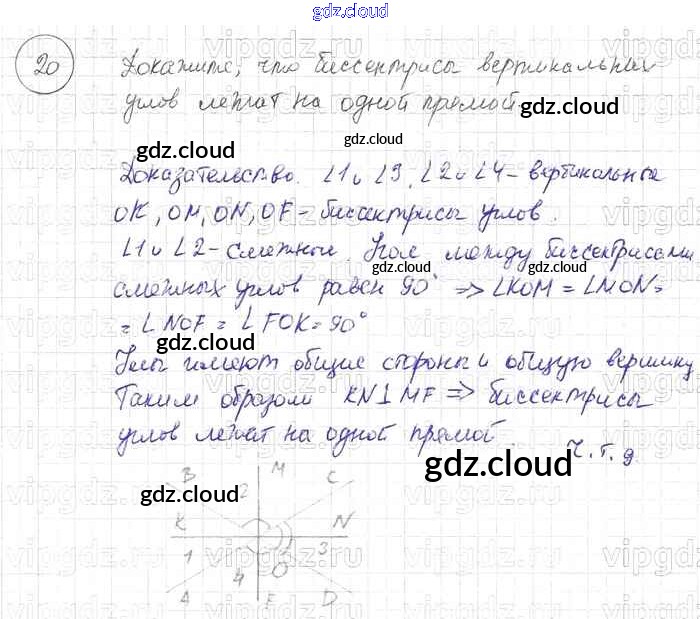 gdz.cloud
20 Докажите, что биссектрисы вертикальных
углов лежат на одной прямой.
gdz.cloud
gdz.cloud
gdz.cloud
Доказательство. ∠1 и ∠3, ∠2 и ∠4 - вертикальные
OK, OM, ON, OF - биссектрисы углов.
∠1 и ∠2 - смежные. Угол между биссектрисами
gdz.cloud
gdz.cloud
смежных углов равен 90° => ∠KOM = ∠MON =
= ∠NOF = ∠FOK = 90°
gdz.cloud
gdz.cloud
Углы имеют общие стороны и общую вершину
Таким образом KN⊥MF => биссектрисы
gdz.cloud
углов лежат на одной прямой.
Ч.т.д.
gdz.cloud
B M C
2
gdz.cloud
gdz.cloud
K N
1 3
4 O
A F D
vipgdz